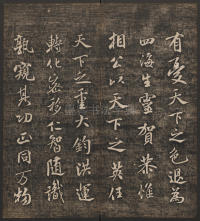 有憂天下之色退為
四海生靈賀恭惟
相公以天下之英任
天下之重大鈞洪運
轉化密移仁智隨識
孰窺其功正同万物